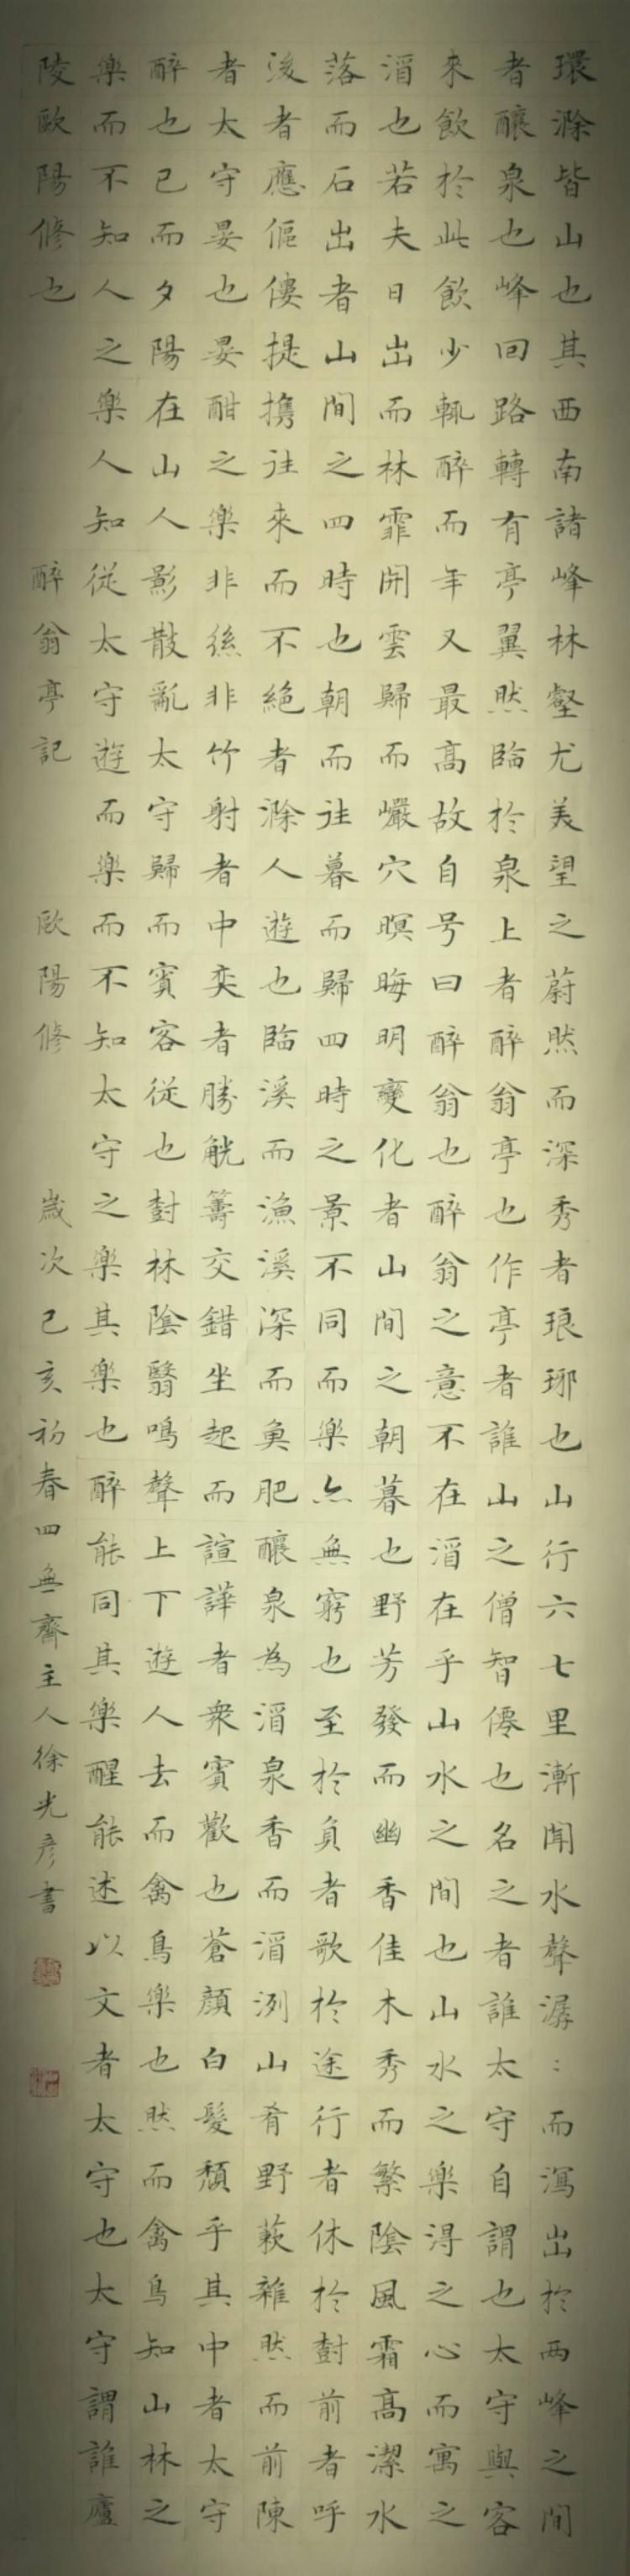 環滁皆山也其西南諸峰林壑尤美望之蔚然而深秀者琅琊也山行六七里漸聞水聲潺:而瀉出於兩峰之間
者釀泉也峰回路轉有亭翼然臨於泉上者醉翁亭也作亭者誰山之僧智僊也名之者誰太守自謂也太守與客
來飲於此飲少輒醉而年又最高故自号曰醉翁也醉翁之意不在酒在乎山水之間也山水之樂得之心而寓之
酒也若夫日出而林霏開雲歸而巖穴暝晦明變化者山間之朝暮也野芳發而幽香佳木秀而繁陰風霜高潔水
落而石出者山間之四時也朝而往暮而歸四時之景不同而樂亦無窮也至於負者歌於途行者休於樹前者呼
後者應傴僂提攜往來而不絕者滁人遊也臨溪而漁溪深而魚肥釀泉為酒泉香而酒洌山肴野蔌雜然而前陳
者太守宴也宴酣之樂非絲非竹射者中奕者勝觥籌交錯坐起而諠譁者眾賓歡也蒼顏白髮頹乎其中者太守
醉也已而夕陽在山人影散亂太守歸而賓客從也樹林陰翳鳴聲上下遊人去而禽鳥樂也然而禽鳥知山林之
樂而不知人之樂人知從太守遊而樂而不知太守之樂其樂也醉能同其樂醒能述以文者太守也太守謂誰廬
陵歐陽修也 醉翁亭記 歐陽修 歲次己亥初春四無齋主人徐光彥書